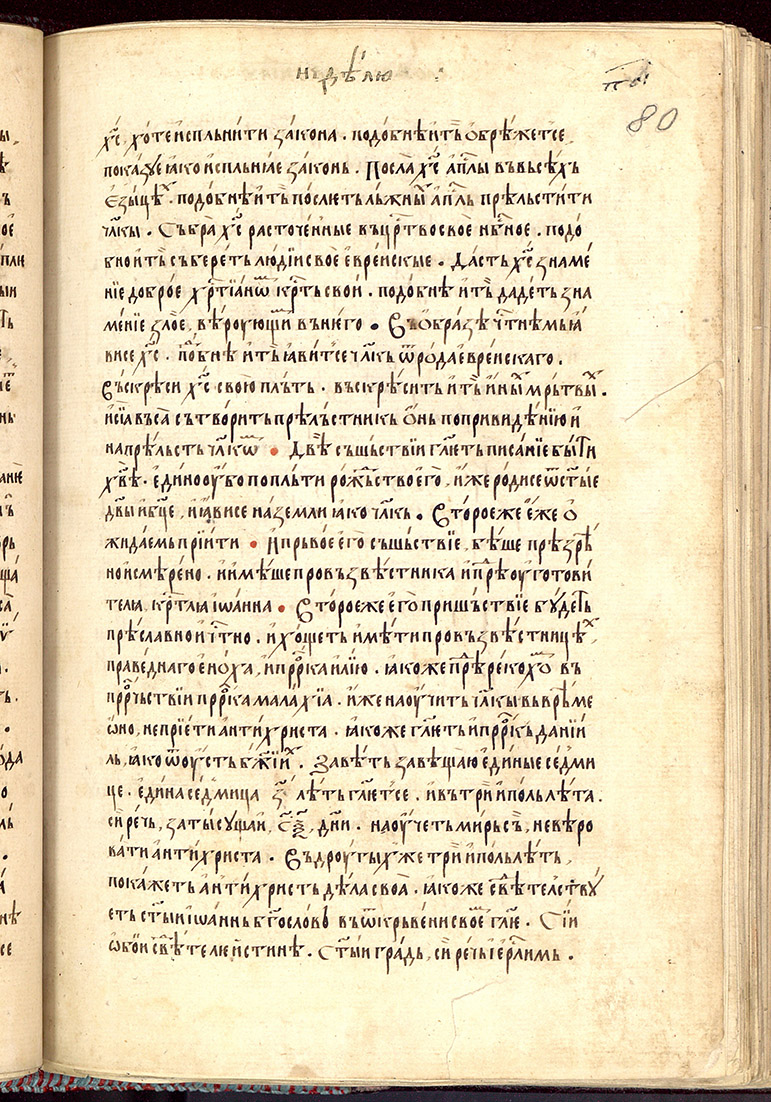 недѣлю
80
хс҃, хоте испльнити закона. подобнѣ и тъ обрѣжетсе,
показуе іако испльніае законь. Посла хс҃ ап҃лы въ вьсѣхъ
езыцѣх. подобнѣ и тъ послеть льжныи ап҃ль прѣльстити
чл҃кы. Събра хс҃ расточенные въ цр҃тво свое нб҃ное. подо
бно и тъ съберетъ людїи свое еврейскые. Дасть хс҃ знаме
нїе доброе хр҃тїаном кр҃ть свои. подобнѣ и тъ дадеть зна
менїе злое, вѣроующїи въ него. Въ образѣ чл҃чьсцѣмь іа
висе хс҃. пѡбнѣ и тъ іавитсе чл҃кь ѿ рода еврейскаго.
Въскрѣси хс҃ свою плъть. въскрѣсить и тъ иных мрьтвых.
и сїа въса сътворить прѣльстникь онь по привидѣнїю и
на прѣльсть чл҃кѡм. Двѣ съшьствїи гл҃еть писанїе быти
хв҃ѣ. едино оубо по плъти рожьство его, иже родисе ѿ ст҃ые
дв҃ы и бц҃е, и іависе на земли іако чл҃кь. Второе же еже о
жидаемь прїити. И прьвое его съшьствїе, бѣше прѣзрѣ
но и смѣрено. и имѣше провъзвѣстника и прѣоуготови
телıа, кр҃тлıа іѡанна. Второе же его пришьствїе будеть
прѣславно и чт҃но. и хощеть имѣти провъзвѣстницѣх,
праведнаго еноха, и пр҃рка илїю. іакоже прѣрекохѡм въ
пр҃рчьствїи пр҃рка малахїа. иже наоучить чл҃кы въ врѣме
ѡно, не прїети антихриста. іакоже гл҃еть и пр҃ркъ данїи
ль, іако ѿ оусть бж҃їих. Завѣть завѣщаю единые седми
це. едина седмица з҃ лѣть гл҃етсе. и въ три и поль лѣта.
си речь, за тысущаи, с҃ѯ, дн҃и. наоучеть мирь съ, не вѣро
вати антихриста. Въ дроугых же три и поль лѣть,
покажеть антихристь дѣла своıа. іакоже свѣтелству
еть ст҃ыи іѡаннь бг҃ословь въ ѿкрьвени своем гл҃е. Сїи
ѡбои свѣтелıе истинѣ. Ст҃ыи градь, си речь іер҃лимь.